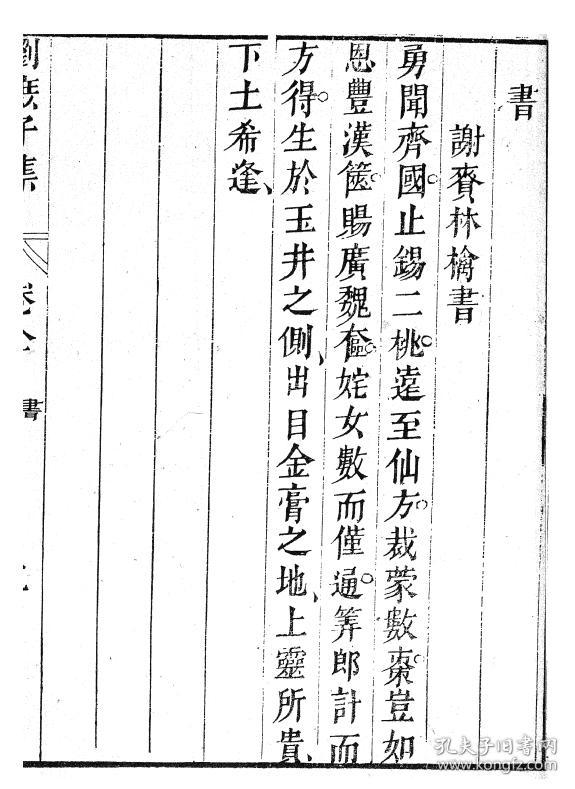 書
謝賚林檎書
勇聞齊國止錫二桃遠至仙方裁蒙數棗豈如
恩豐漢篋賜廣魏奩姹女數而僅通筭郎計而
方得生於玉井之側出目金膏之地上靈所貴
下土希逢
劉庶子集
卷全
書
孔夫子旧书网
www.kongfz.com